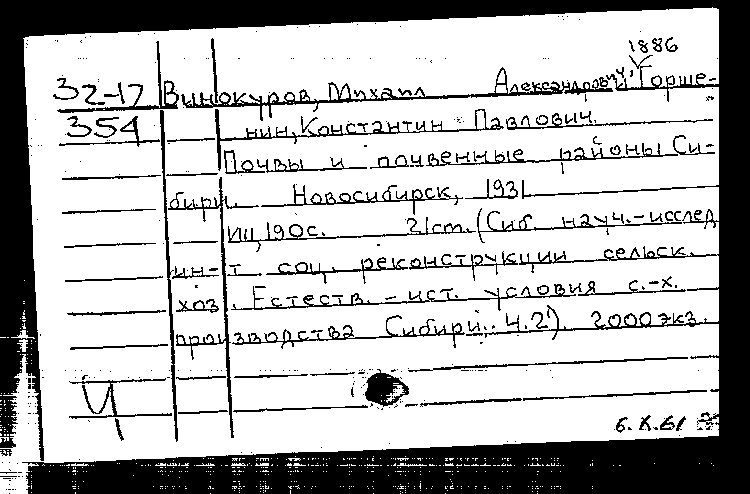 1886
32-17 Винокуров, Михаил Александрович, Горше-
354 нин, Константин Павлович.
Почвы и почвенные районы Си-
бири. Новосибирск, 1931
190с. 21см. (Сиб. науч.-исслед
ин-т соц. реконструкции сельск.
хоз. Естеств.-ист. условия с.-х.
производства Сибири, Ч.2). 2000 экз.
Ч
6.X.61